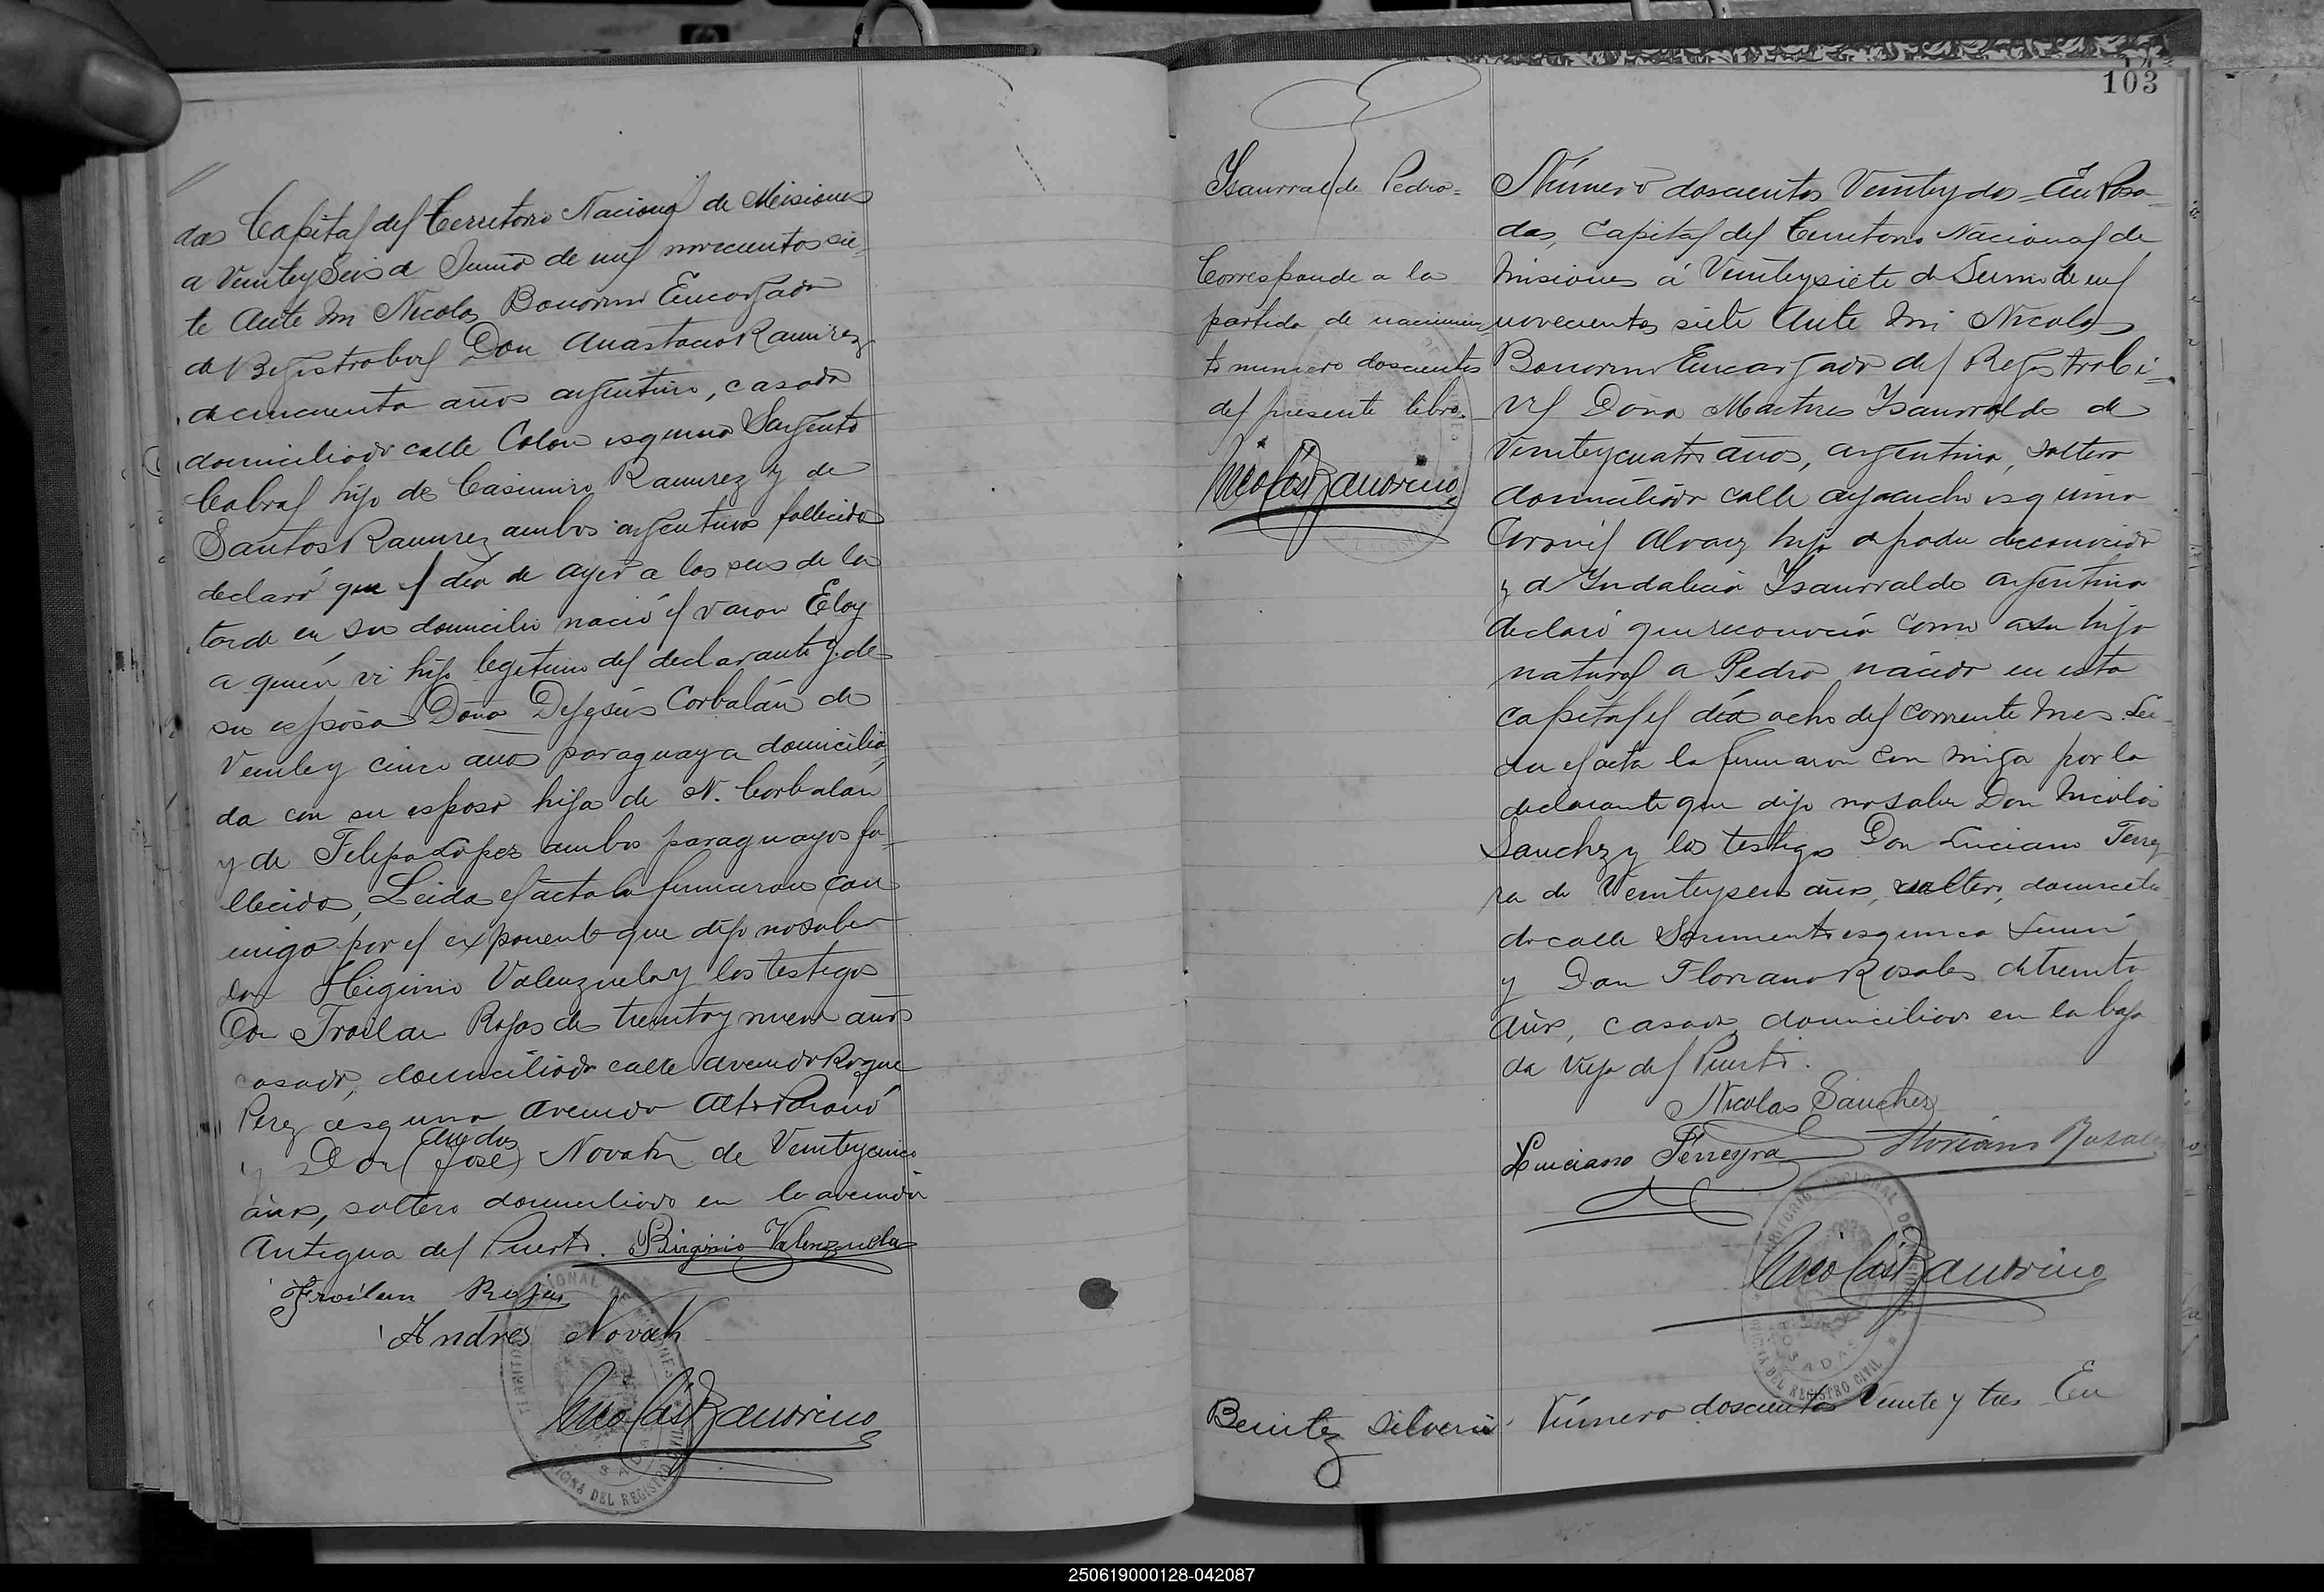 das Capital del Territorio Nacional de Misiones
a Veinty Seis de Junio de mil novecientos sie-
te Ante Mi Nicolas Bonorino Encargado
de Registro Civil Don Anastacio Ramirez
de cincuenta años argentino, casado
domiciliado calle Colon esquina Sargento
Cabral hijo de Casimiro Ramirez y de
Santos Ramirez ambos argentinos fallecidos
declaró que el día de ayer a las seis de la
tarde en su domicilio nació el varon Eloy
a quién vi hijo legitimo del declarante y de
su esposa Doña Dejesús Corbalán de
Veinte y cinco años paraguaya domicilia
da con su esposo hija de N. Corbalán
y de Felipa Lopez ambos paraguayos fa-
llecidos, Leida el acta la firmaron con
migo por el exponente que dijo no saber
don Higinio Valenzuela y los testigos
Don Froilan Rojas de treinta y nueve años
casado, domiciliado calle avenida Roque
Perez esquina avenida Alto Paraná
Andres
y Don (José) Novak de Veinteycinco
años, soltero domiciliado en la avenida
Antigua del Puerto. Birginio Valenzuela
Froilan Rojas
Andres Novak
Nicolás Bonorino
TERRITORIO NACIONAL DE MISIONES
OFICINA DEL REGISTRO CIVIL
POSADAS
103
Ysaurralde Pedro=
Corresponde a la
partida de nacimien
to numero doscientos
del presente libro.
Nicolás Bonorino
Número doscientos Veinteydos = En Posa-
das, Capital del Territorio Nacional de
Misiones á Veinteysiete de Junio de mil
novecientos siete Ante Mi Nicolas
Bonorino Encargado del Registro Ci-
vil Doña Martires Ysaurralde de
Veinteycuatro años, argentina, soltera
domiciliada calle ayacucho esquina
Coronel Alvarez hija de padre desconocido
y de Yndalecia Ysaurralde argentina
declaró que reconocia como a su hijo
natural a Pedro nacido en esta
capital el día ocho del corriente mes. Lei-
da el acta la firmaron con migo por la
declarante que dijo no saber Don Nicolás
Sanchez y los testigos Don Luciano Ferrey
ra de Veinteyseis años, soltero, domicilia
do calle Sarmiento esquina Junin
y Don Floriano Rosales de treinta
años, casado, domiciliado en la baja
da vieja del Puerto.
Nicolas Sanchez
Luciano Ferreyra Floriano Rosales
Nicolás Bonorino
TERRITORIO NACIONAL DE MISIONES
OFICINA DEL REGISTRO CIVIL
POSADAS
Benitez Silverio
Número doscientos Veinte y tres En
250619000128-042087